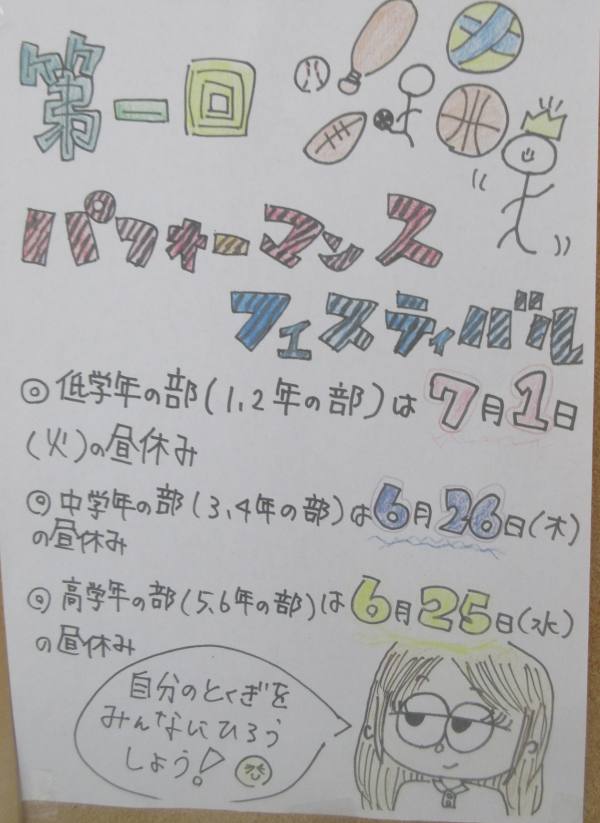 第一回
パフォーマンス
フェスティバル
◎低学年の部(1,2年の部)は7月1日
(火)の昼休み
◎中学年の部(3、4年の部)は6月26日(木)
の昼休み
◎高学年の部(5、6年の部)は6月25日(水)
の昼休み
自分のとくぎを
みんなにひろう
しよう!